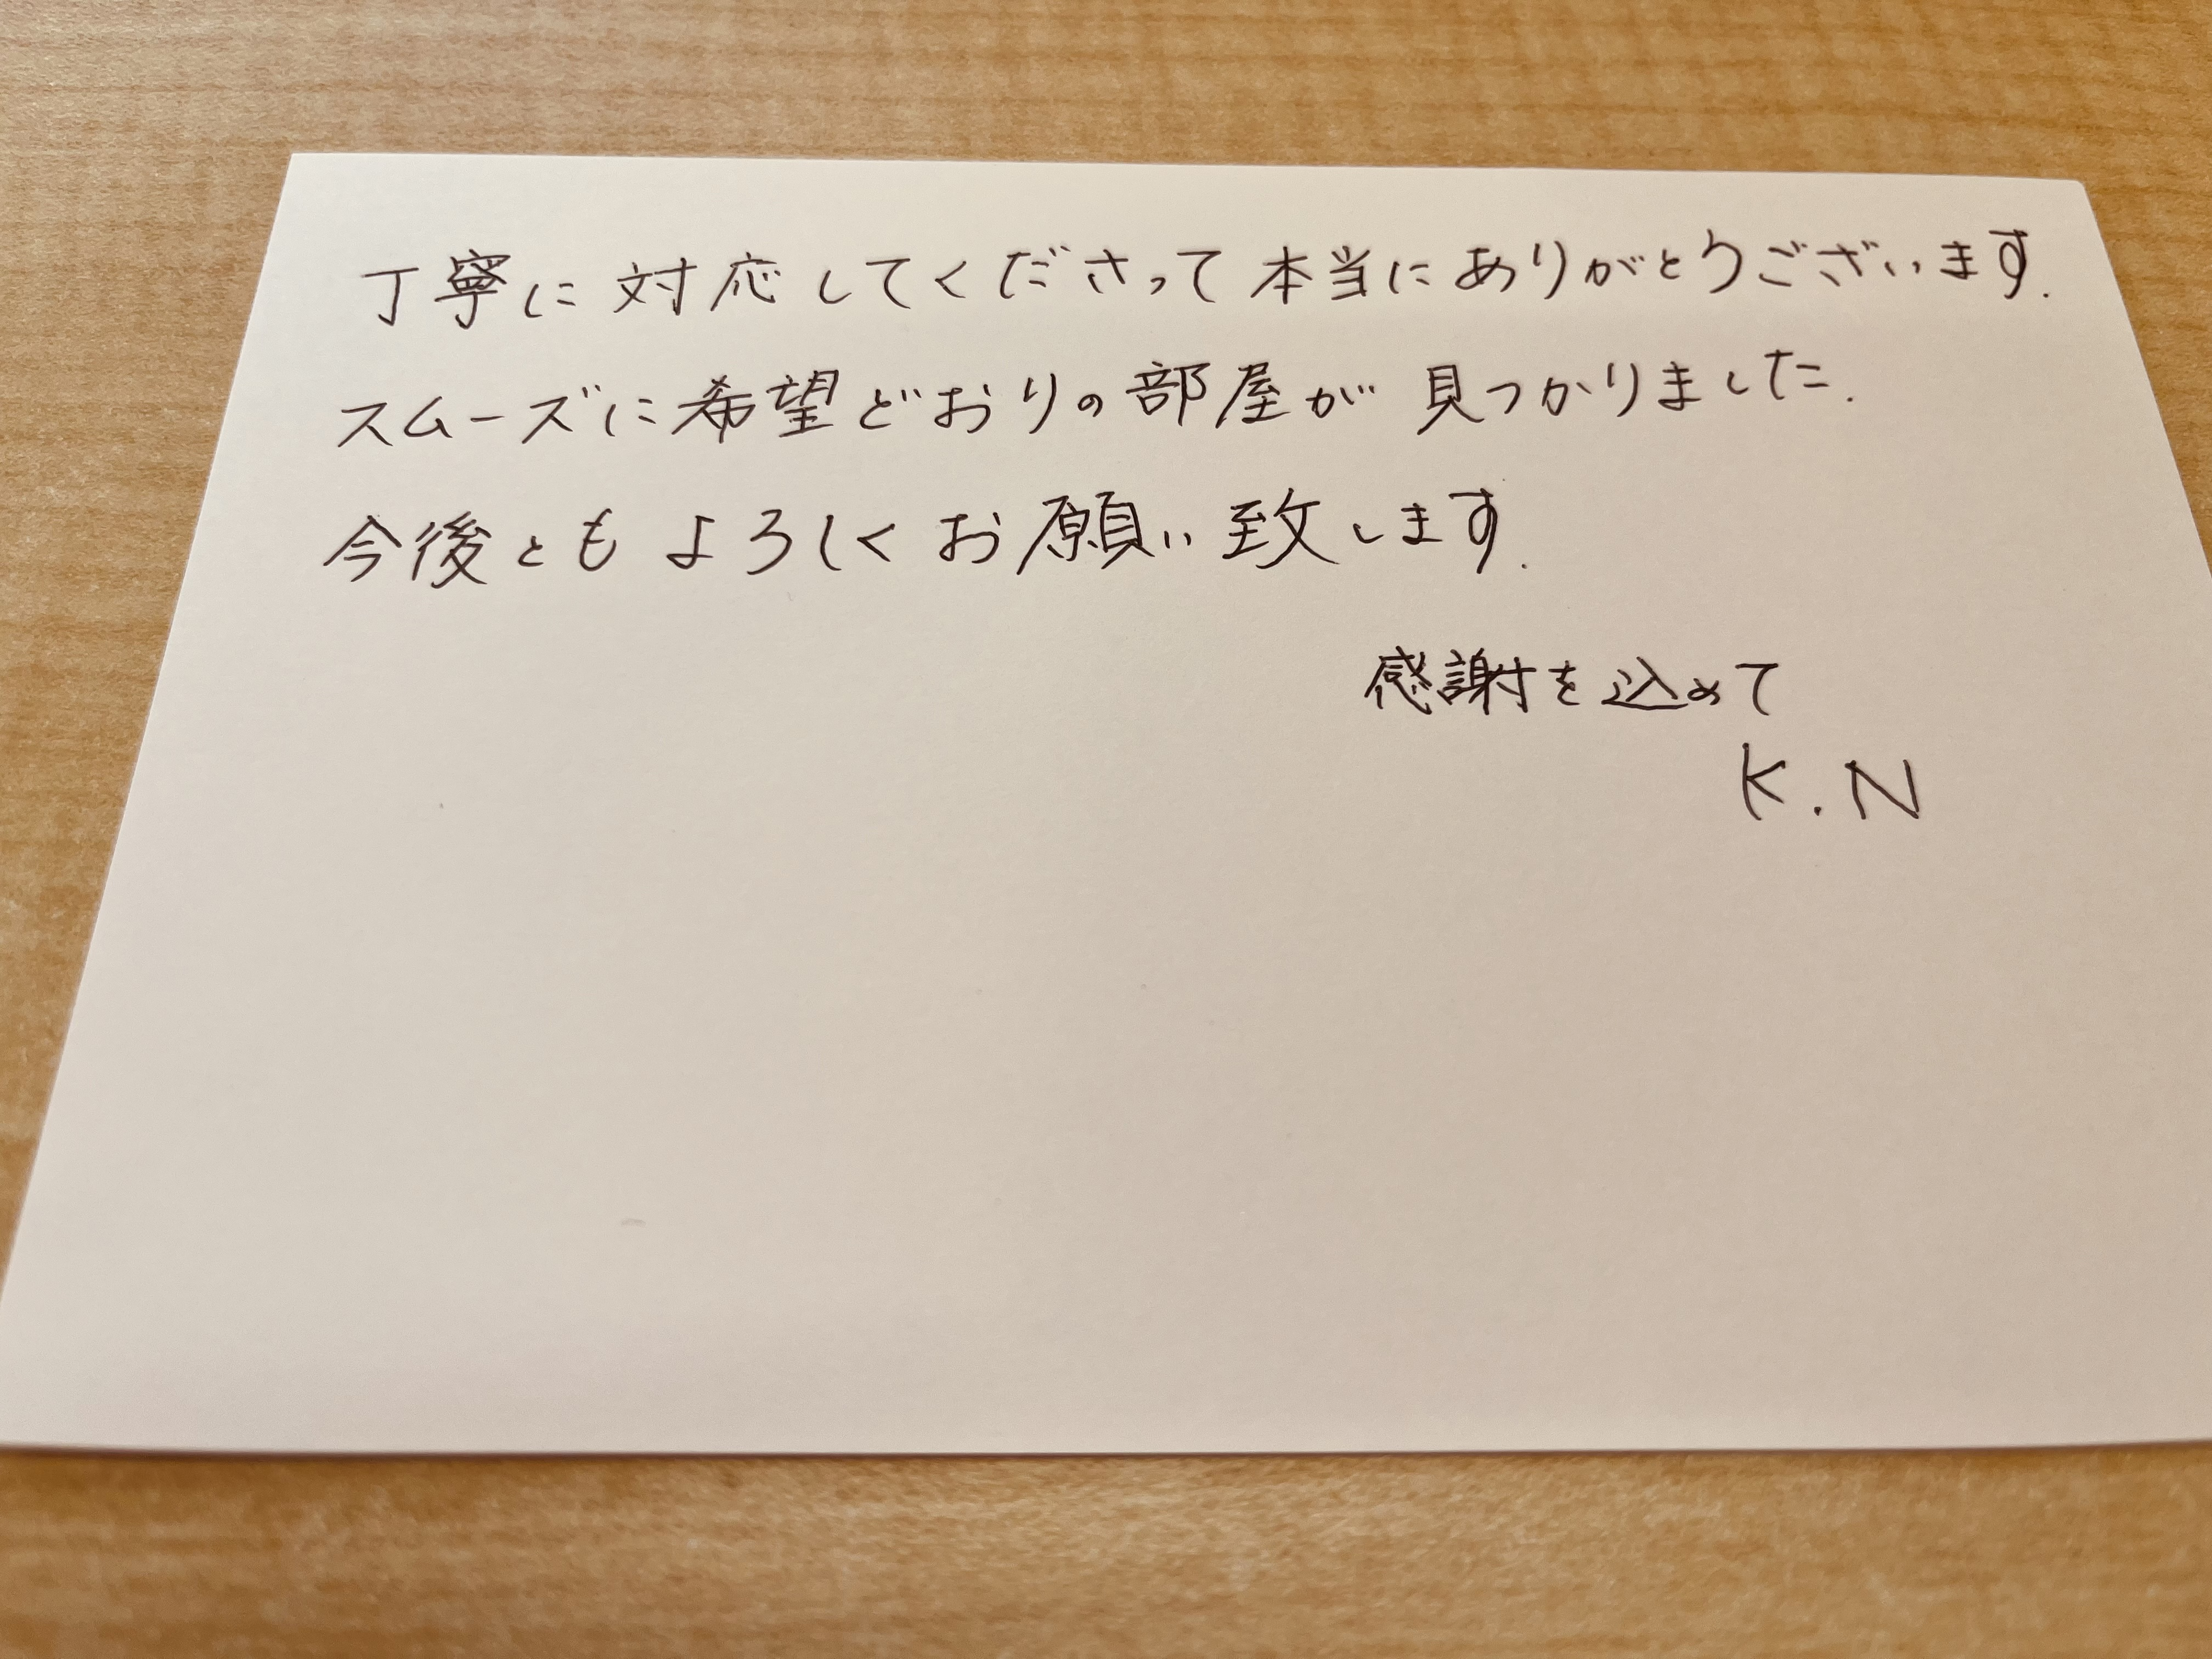 丁寧に対応してくださって本当にありがとうございます.
スムーズに希望どおりの部屋が見つかりました.
今後ともよろしくお願い致します.
感謝を込めて
K.N